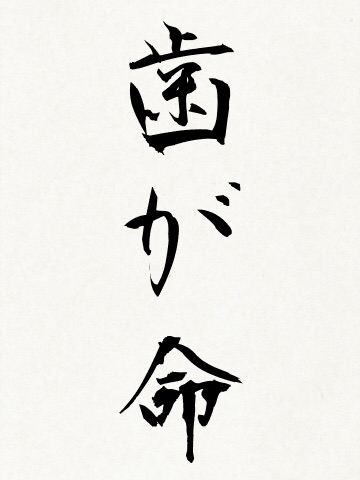 歯が命